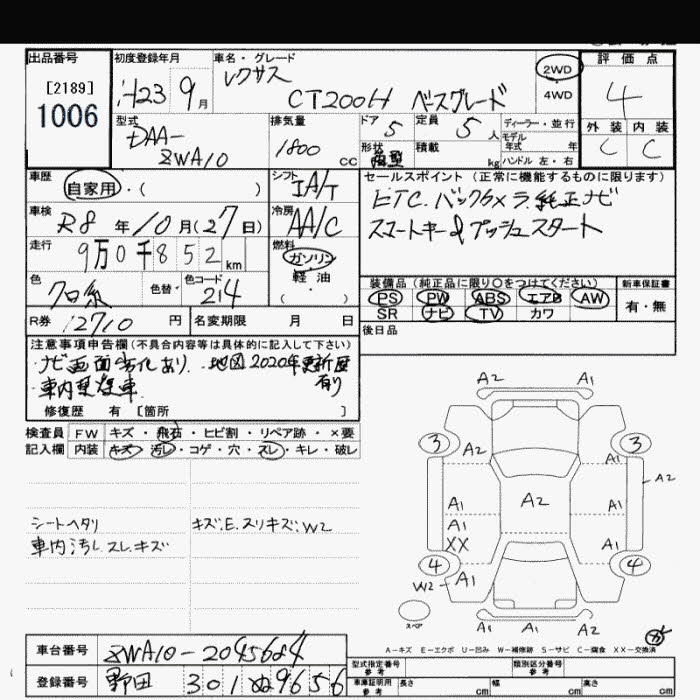 出品番号
[2189]
1006
初度登録年月
H23 9月
車名・グレード
レクサス
CT200H ベースグレード
2WD
4WD
評価点
4
外装 内装
C C
型式
DAA-
ZWA10
排気量
1800 CC
ドア 5
定員 5 人
形状
積載 kg
ディーラー・並行
モデル
年式 年
ハンドル 左・右
車歴
自家用・( )
シフト
IA/T
車検
R8年10月(27日)
冷房
AA/C
走行
9万0千852km
燃料
ガソリン
軽油
( )
色
クロ系
色替・
色コード
214
R券 12710円
名変期限 月 日
セールスポイント(正常に機能するものに限ります)
ETC.バックカメラ.純正ナビ
スマートキー&プッシュスタート
装備品(純正品に限り○をつけてください)
PS PW ABS エアB AW
SR ナビ TV カワ
新車保証書
有・無
後日品
注意事項申告欄(不具合内容等は具体的に記入して下さい)
・ナビ画面劣化あり ・地図2020年更新歴
有り
・車内
修復歴 有 [箇所 ]
検査員
記入欄
FW キズ・飛石・ヒビ割・リペア跡・×要
内装 キズ・汚レ・コゲ・穴・スレ・キレ・破レ
シートヘタリ
車内汚レ.スレ.キズ
キズ.E.スリキズ.W2
A2 A1
3 3
A2 A1
A2
A1 A2 A1
A1
XX A1
4 4
W2 A1
スペア
A1 A1 A2
A-キズ E-エクボ U-凹み W-補修跡 S-サビ C-腐食 XX-交換済
車台番号 ZWA10-2045684
登録番号 野田 301 ぬ9656
型式指定番号
参考
類別区分番号
参考
車庫証明用
参考
長さ cm 幅 cm 高さ cm